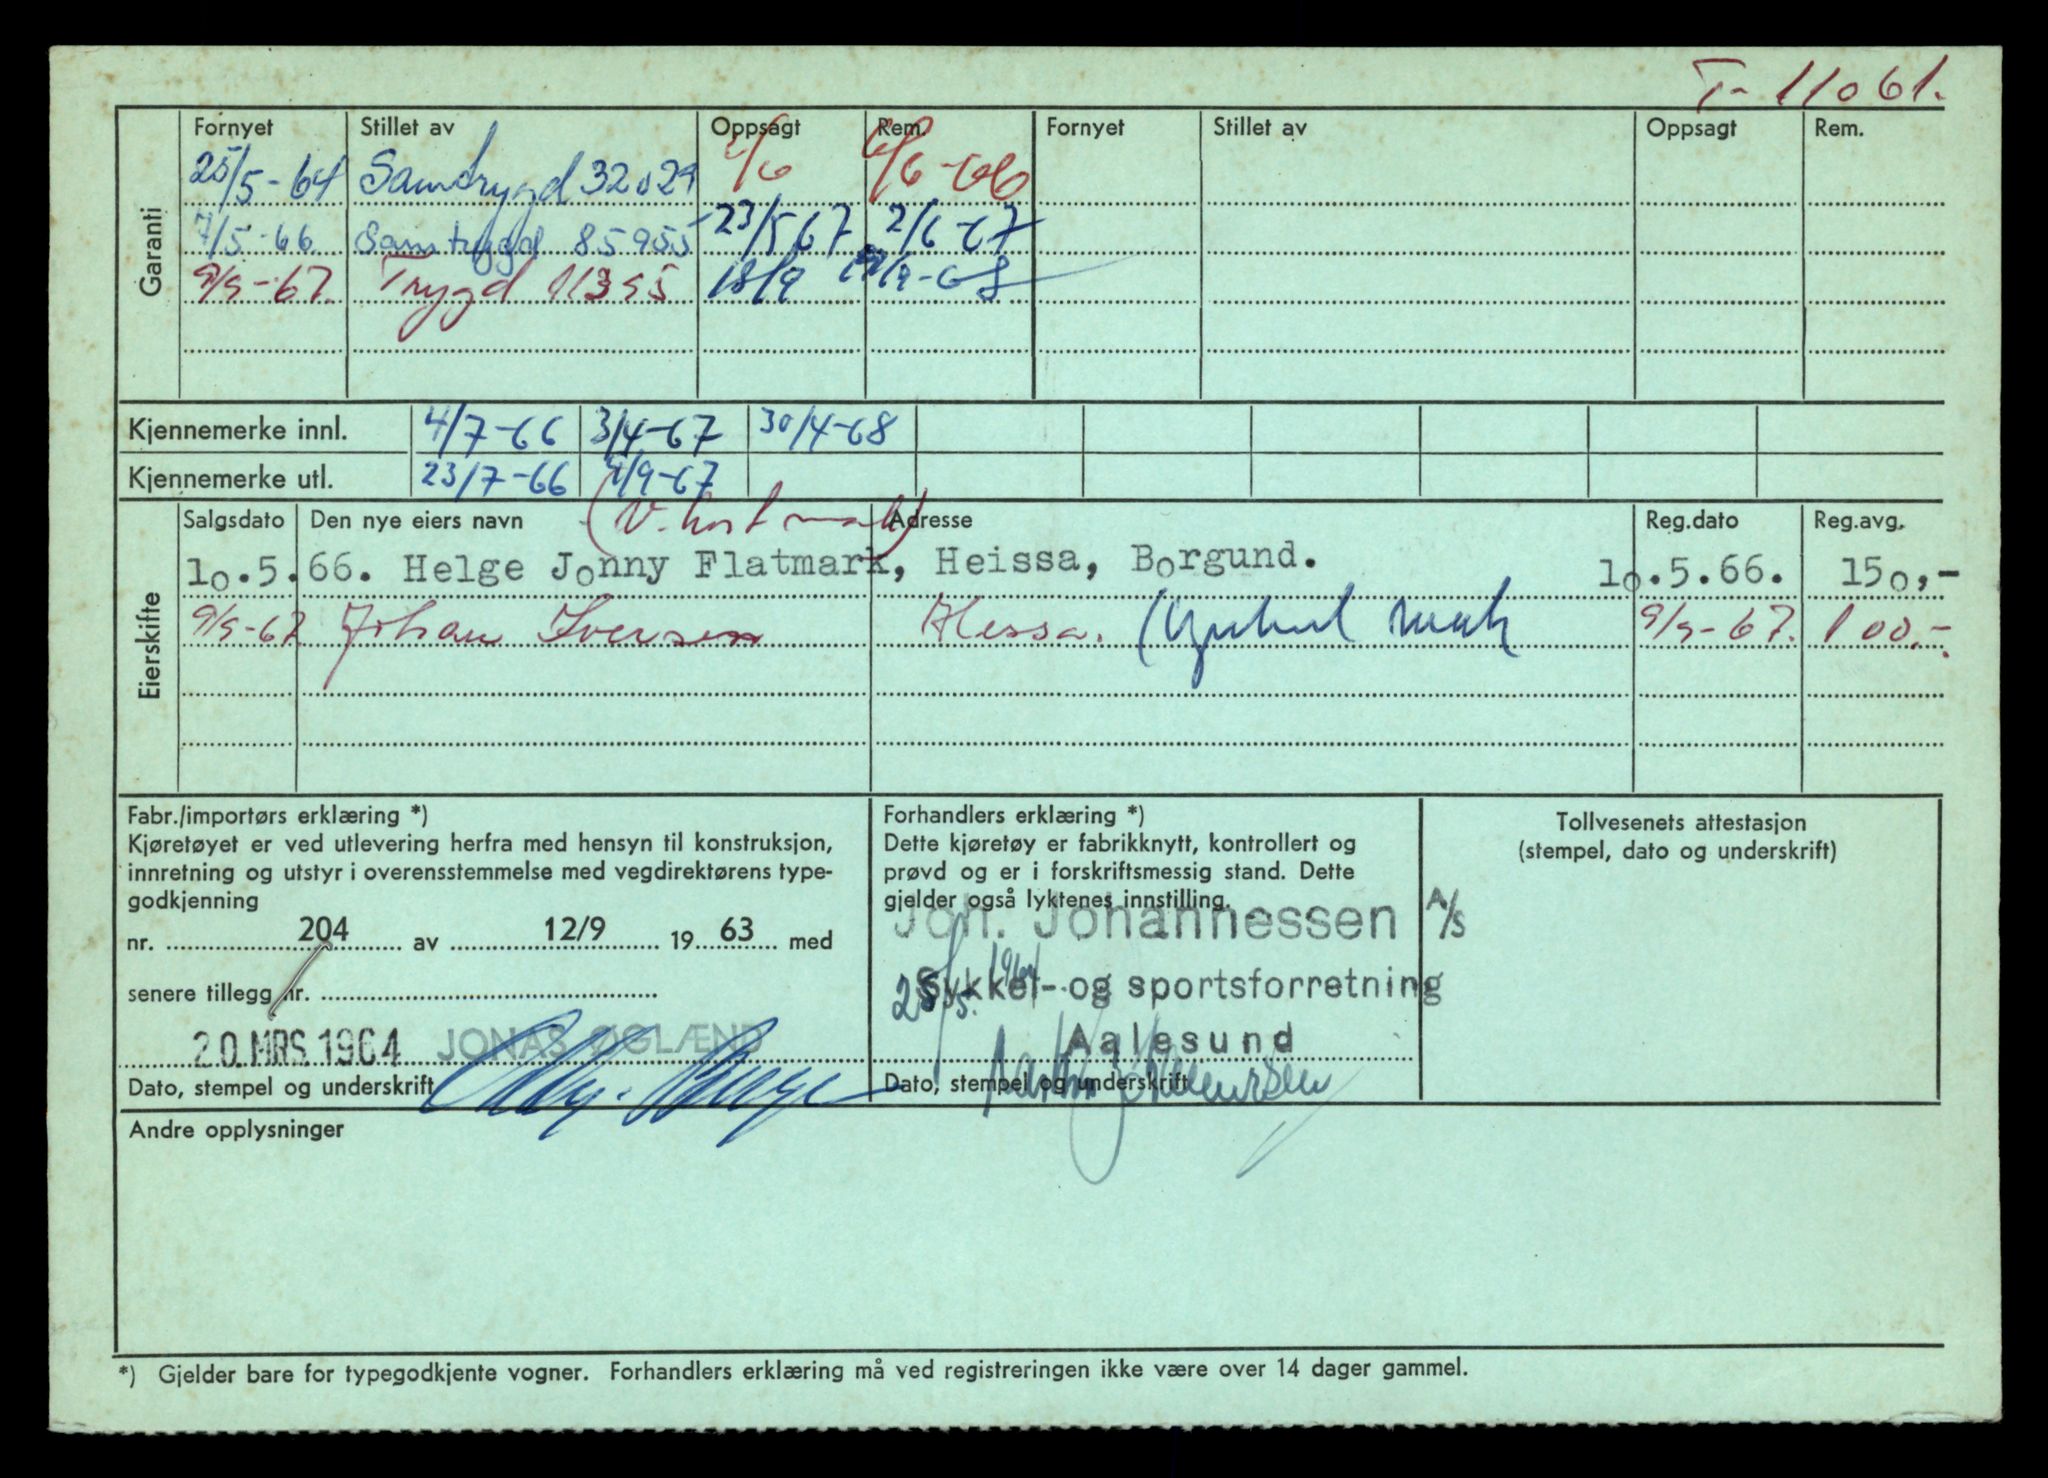 T-11061.
Garanti
Fornyet Stillet av Oppsagt Rem. Fornyet Stillet av Oppsagt Rem.
25/5-64 Samtrygd 32029 2/6 6/6-66
7/5-66 Samtrygd 85955 23/5 67 2/6-67
9/9-67. Trygd 11395 18/9 /9-68
Kjennemerke innl. 4/7-66 3/4-67 30/4-68
Kjennemerke utl. 23/7-66 /9-67
Eierskifte
Salgsdato Den nye eiers navn Adresse Reg.dato Reg.avg.
10.5.66. Helge Jonny Flatmark, Heissa, Borgund. 10.5.66. 150,-
9/9-67 Johan Iversen Hessa. 9/9-67. 100.-
Fabr./importørs erklæring *)
Kjøretøyet er ved utlevering herfra med hensyn til konstruksjon,
innretning og utstyr i overensstemmelse med vegdirektørens type-
godkjenning
nr. 204 av 12/9 1963 med
senere tillegg nr.
20.MRS.1964 JONAS ØGLÆND
Dato, stempel og underskrift
Forhandlers erklæring *)
Dette kjøretøy er fabrikknytt, kontrollert og
prøvd og er i forskriftsmessig stand. Dette
gjelder også lyktenes innstilling.
Joh. Johannessen A/S
Sykkel- og sportsforretning
25/5. 1964
Aalesund
Dato, stempel og underskrift
Tollvesenets attestasjon
(stempel, dato og underskrift)
Andre opplysninger
*) Gjelder bare for typegodkjente vogner. Forhandlers erklæring må ved registreringen ikke være over 14 dager gammel.